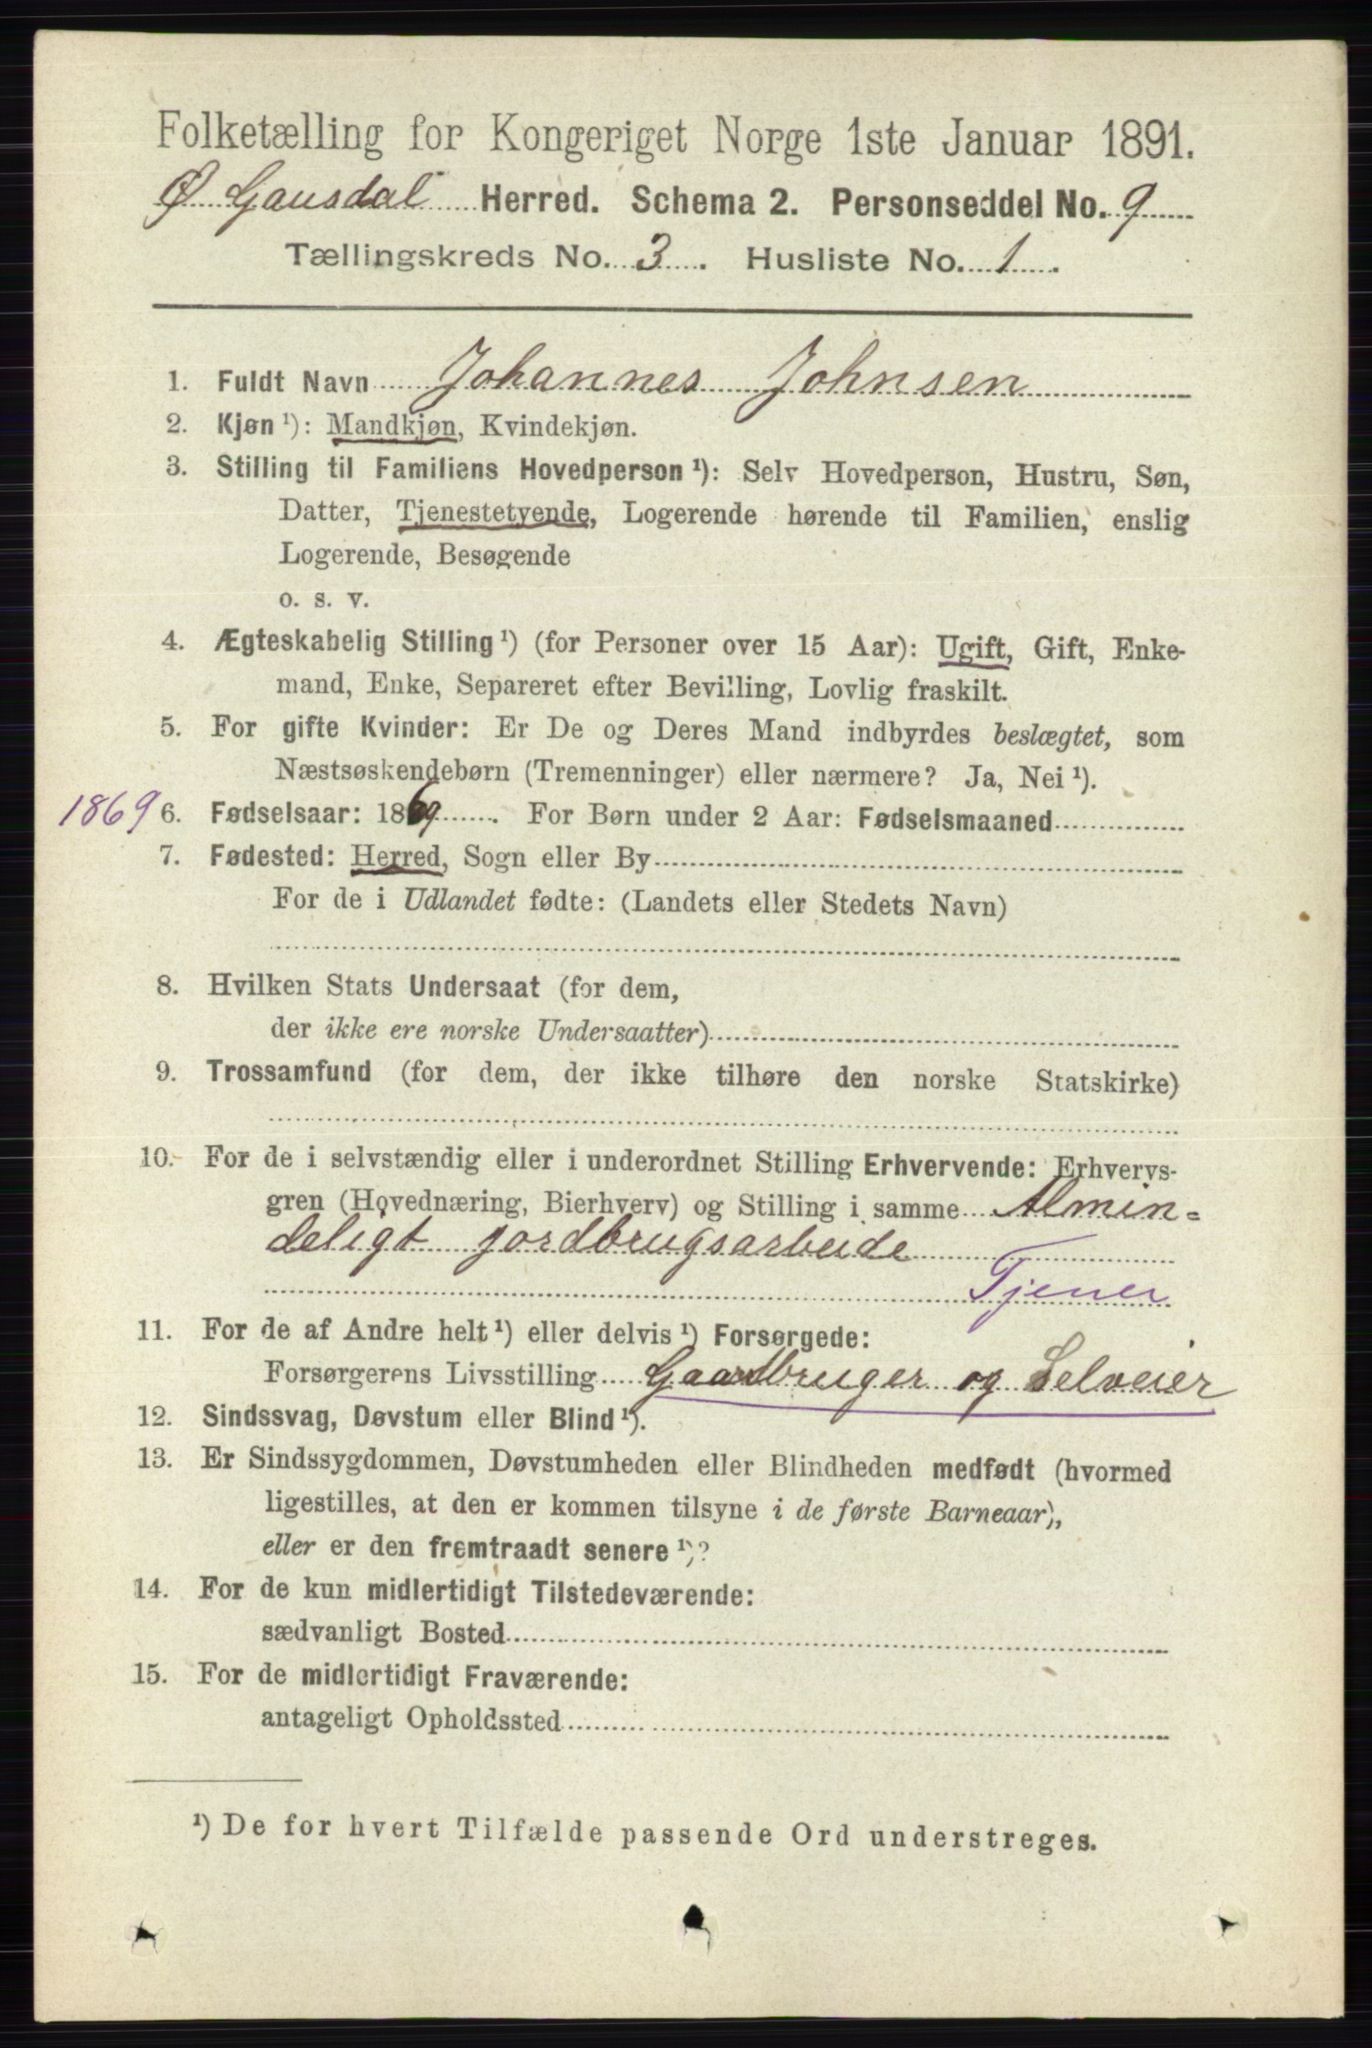 Folketælling for Kongeriget Norge 1ste Januar 1891.
Ø. Gausdal Herred. Schema 2. Personseddel No. 9
Tællingskreds No. 3. Husliste No. 1.
1. Fuldt Navn Johannes Johnsen
2. Kjøn ¹): Mandkjøn, Kvindekjøn.
3. Stilling til Familiens Hovedperson ¹): Selv Hovedperson, Hustru, Søn,
Datter, Tjenestetyende, Logerende hørende til Familien, enslig
Logerende, Besøgende
o. s. v.
4. Ægteskabelig Stilling ¹) (for Personer over 15 Aar): Ugift, Gift, Enke-
mand, Enke, Separeret efter Bevilling, Lovlig fraskilt.
5. For gifte Kvinder: Er De og Deres Mand indbyrdes beslægtet, som
Næstsøskendebørn (Tremenninger) eller nærmere? Ja, Nei ¹).
1869 6. Fødselsaar: 1869. For Børn under 2 Aar: Fødselsmaaned
7. Fødested: Herred, Sogn eller By
For de i Udlandet fødte: (Landets eller Stedets Navn)
8. Hvilken Stats Undersaat (for dem,
der ikke ere norske Undersaatter)
9. Trossamfund (for dem, der ikke tilhøre den norske Statskirke)
10. For de i selvstændig eller i underordnet Stilling Erhvervende: Erhvervs-
gren (Hovednæring, Bierhverv) og Stilling i samme Almin-
deligt jordbrugsarbeide
Tjener
11. For de af Andre helt ¹) eller delvis ¹) Forsørgede:
Forsørgerens Livsstilling Gaardbruger og Selveier
12. Sindssvag, Døvstum eller Blind ¹).
13. Er Sindssygdommen, Døvstumheden eller Blindheden medfødt (hvormed
ligestilles, at den er kommen tilsyne i de første Barneaar),
eller er den fremtraadt senere ¹)?
14. For de kun midlertidigt Tilstedeværende:
sædvanligt Bosted
15. For de midlertidigt Fraværende:
antageligt Opholdssted
¹) De for hvert Tilfælde passende Ord understreges.